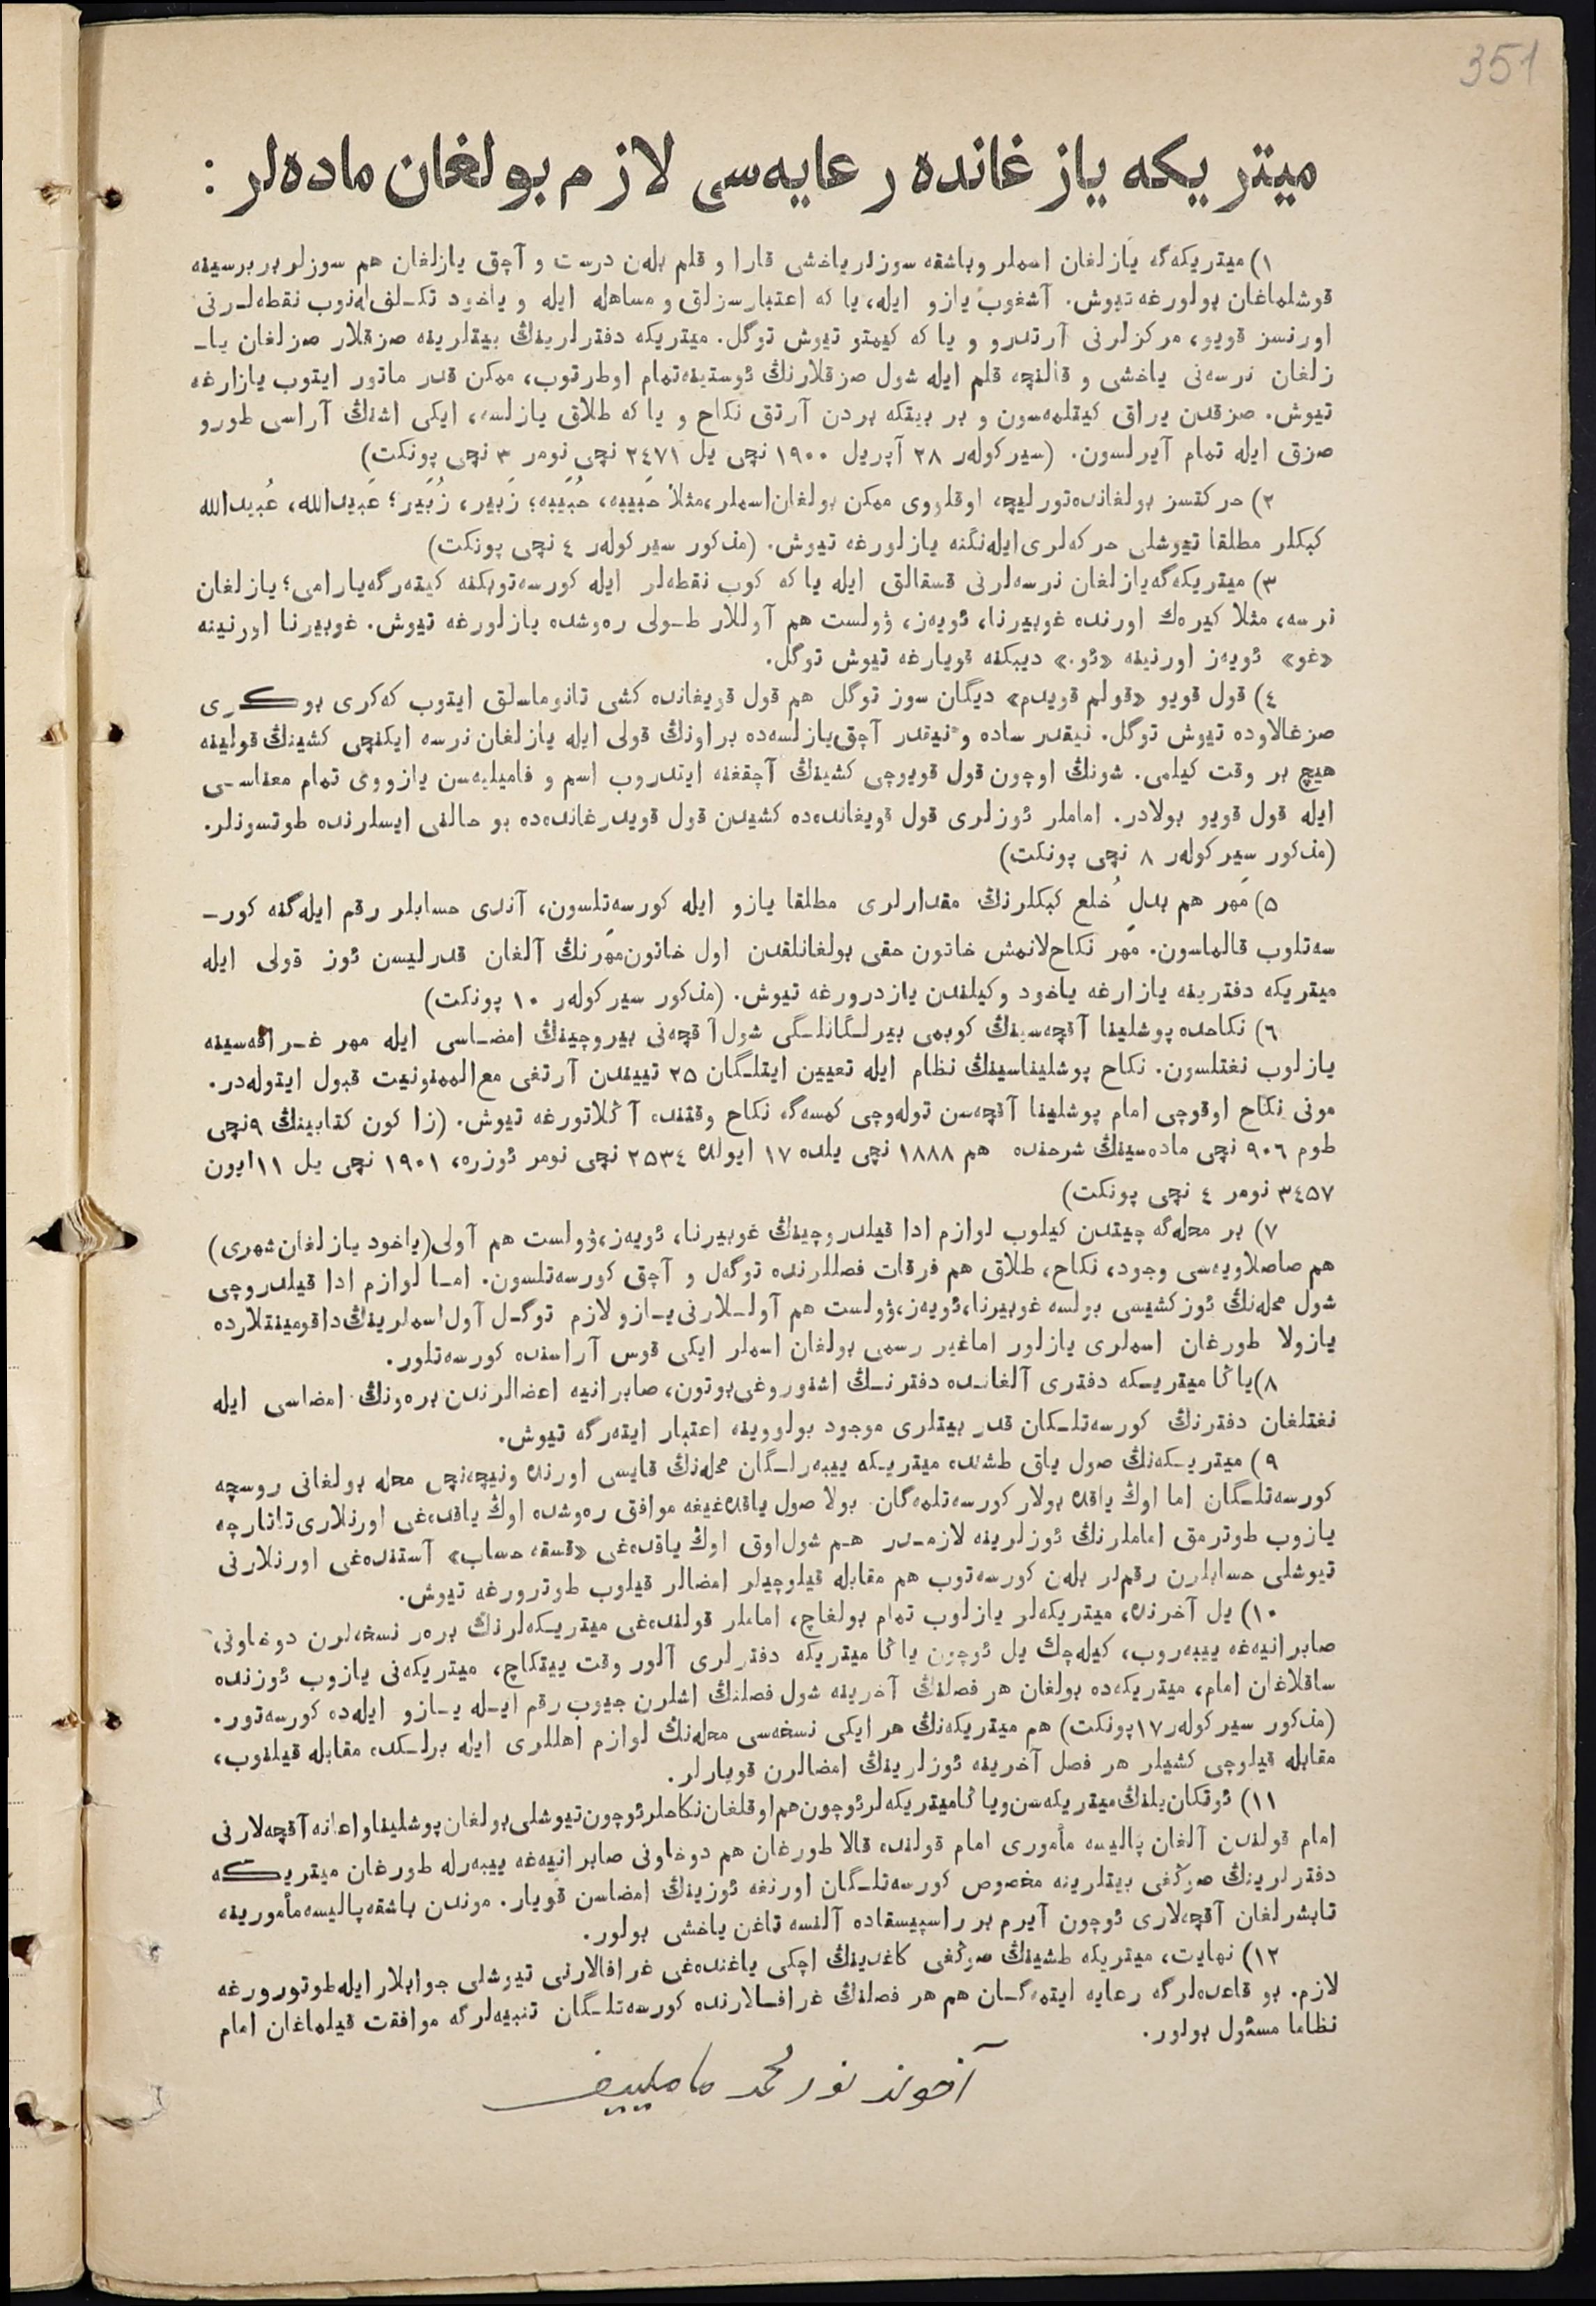 351
میتریكه یازغانده رعایه‌سی لازم بولغان ماده‌لر :
١) میتریكه‌گه یازلغان اسملر وباشقه سوزلر یاخشی قارا و قلم بله‌ن درست و آچق یازلغان هم سوزلر بربرسینه
قوشلماغان بولورغه تیوش. آشغوب یازو ایله، یا كه اعتبارسزلق و مساهله ایله و یاخود تكـلف له‌نوب نقطه‌لـرنی
اورنسز قویو، مركزلرنی آرتدرو و یا كه كیمتو تیوش توگل. میتریكه دفترلرینڭ بیتلرینه صزقلار صزلغان یا‌ـ
زلغان نرسه‌نی یاخشی و قالنچه قلم ایله شول صزقلارنڭ ئوستینه تمام اوطرتوب، ممكن قدر ماتور ایتوب یازارغه
تیوش. صزقدن یراق كیتلمه‌سون و بر بیتكه بردن آرتق نكاح و یا كه طلاق یازلسه، ایكی اشنڭ آراسی طورو
صزق ایله تمام آیرلسون. (سیركوله‌ر ٢٨ آپریل ١٩٠٠ نچی یل ٢٤٧١ نچی نومر ٣ نچی پونكت)
٢) حركتسز بولغانده تورلیچه اوقلووی ممكن بولغان اسملر، مثلا حَبیبه، حُبَیبه؛ زَبیر، زُبَیر؛ عَبیدالله، عُبیدالله
كبكلر مطلقا تیوشلی حركه‌لری ایله‌نگنه یازلورغه تیوش. (مذكور سیركوله‌ر ٤ نچی پونكت)
٣) میتریكه‌گه یازلغان نرسه‌لرنی قسقالق ایله یا كه كوب نقطه‌لر ایله كورسه‌توبكنه كیته‌رگه یارامی؛ یازلغان
نرسه، مثلا كیره‌ك اورنده غوبیرنا، ئویه‌ز، ۋولست هم آوللار طـولی ره‌وشده یازلورغه تیوش. غوبیرنا اورنینه
«غو» ئویه‌ز اورنینه «ئو.» دیبكنه قویارغه تیوش توگل.
٤) قول قویو «قولم قویدم» دیگان سوز توگل هم قول قویغانده كشی تانوماسلق ایتوب كه‌كری بوكـری
صزغالاوده تیوش توگل. نیقدر ساده و نیقدر آچق یازلسه‌ده براونڭ قولی ایله یازلغان نرسه ایكنچی كشینڭ قولینه
هیچ بر وقت كیلمی. شونڭ اوچون قول قویوچی كشینڭ آچقغنه ایتدروب اسم و فامیلیه‌سن یازووی تمام معناسـی
ایله قول قویو بولادر. اماملر ئوزلری قول قویغانده‌ده كشیدن قول قویدرغانده‌ده بو حالنی ایسلرنده طوتسونلر.
(مذكور سیركوله‌ر ٨ نچی پونكت)
٥) مَهر هم بدل خُلع كبكلرنڭ مقدارلری مطلقا یازو ایله كورسه‌تلسون، آندی حسابلر رقم ایله‌گنه كور‌ـ
سه‌تلوب قالماسون. مَهر نكاح‌لانمش خاتون حقی بولغانلقدن اول خاتون مَهرنڭ آلغان قدرلیسن ئوز قولی ایله
میتریكه دفترینه یازارغه یاخود وكیلندن یازدرورغه تیوش. (مذكور سیركوله‌ر ١٠ پونكت)
٦) نكاحده پوشلینا آقچه‌سینڭ كوبمی بیرلـگانلـگی شول آقچه‌نی بیروچینڭ امضـاسی ایله مهر غـرافه‌سینه
یازلوب نغتلسون. نكاح پوشلیناسینڭ نظام ایله تعیین ایتلـگان ٢٥ تییندن آرتغی مع‌الممنونیت قبول ایتوله‌در.
مونی نكاح اوقوچی امام پوشلینا آقچه‌سن توله‌وچی كمسه‌گه نكاح وقتنده آڭلاتورغه تیوش. (زاكون كتابینڭ ٩نچی
طوم ٩٠٦ نچی ماده‌سینڭ شرحنده هم ١٨٨٨ نچی یلده ١٧ ایولده ٢٥٣٤ نچی نومر ئوزره، ١٩٠١ نچی یل ١١ ایون
٣٤٥٧ نومر ٤ نچی پونكت)
٧) بر محله‌گه چیتدن كیلوب لوازم ادا قیلدروچینڭ غوبیرنا، ئویه‌ز، ۋولست هم آولی (یاخود یازلغان شهری)
هم صاصلاویه‌سی وجود، نكاح، طلاق هم فرقات فصللرنده توگه‌ل و آچق كورسه‌تلسون. امـا لوازم ادا قیلدروچی
شول محله‌نڭ ئوز كشیسی بولسه غوبیرنا، ئویه‌ز، ۋولست هم آولـلارنی یـازو لازم توگـل آول اسملرینڭ داقومینتلارده
یازولا طورغان اسملری یازلور اماغیر رسمی بولغان اسملر ایكی قوس آراسنده كورسه‌تلور.
٨) یاڭا میتریـكه دفتری آلغانـده دفترنـڭ اشنوروغی بوتون، صابرانیه اعضالرندن بره‌ونڭ امضاسی ایله
نغتلغان دفترنڭ كورسه‌تلـگان قدر بیتلری موجود بولووینه اعتبار ایته‌رگه تیوش.
٩) میتریـكه‌نڭ صول یاق طشنده میتریـكه ییبه‌رلـگان محله‌نڭ قایسی اورنده ونیچه‌نچی محله بولغانی روسچه
كورسه‌تلـگان اما اوڭ یاقده بولار كورسه‌تلمه‌گان. بولا صول یاقده‌غیغه موافق ره‌وشده اوڭ یاقده‌غی اورنلاری تاتارچه
یازوب طوترمق اماملرنڭ ئوزلرینه لازمـدر هـم شول اوق اوڭ یاقده‌غی «قسقه حساب» آستنده‌غی اورنلارنی
تیوشلی حسابلرن رقم‌لر بله‌ن كورسه‌توب هم مقابله قیلوچیلر امضالر قیلوب طوترورغه تیوش.
١٠) یل آخرنده، میتریكه‌لر یازلوب تمام بولغاچ، اماملر قولنده‌غی میتریـكه‌لرنڭ بره‌ر نسخه‌لرن دوخاونی
صابرانیه‌غه ییبه‌روب، كیله‌چك یل ئوچون یاڭا میتریكه دفترلری آلور وقت ییتكاچ، میتریكه‌نی یازوب ئوزنده
ساقلاغان امام، میتریكه‌ده بولغان هر فصلنڭ آخرینه شول فصلنڭ اشلرن جیوب رقم ایـله یـازو ایله‌ده كورسه‌تور.
(مذكور سیركوله‌ر ١٧ پونكت) هم میتریكه‌نڭ هر ایكی نسخه‌سی محله‌نڭ لوازم اهللری ایله برلـكده مقابله قیلنوب،
مقابله قیلوچی كشیلر هر فصل آخرینه ئوزلرینڭ امضالرن قویارلر.
١١) ئوتكان یلنڭ میتریكه‌سن ویاڭا میتریكه‌لر ئوچون هم اوقلغان نكاحلر ئوچون تیوشلی بولغان پوشلینا و اعانه آقچه‌لارنی
امام قولندن آلغان پالیسه مأموری امام قولنده قالا طورغان هم دوخاونی صابرانیه‌غه ییبه‌رله طورغان میتریـكه
دفترلرینڭ صوڭغی بیتلرینه مخصوص كورسه‌تلـگان اورنغه ئوزینڭ امضاسن قویار. موندن باشقه پالیسه مأمورینه
تابشرلغان آقچه‌لاری ئوچون آیرم بر راسپیسقاده آلنسه تاغن یاخشی بولور.
١٢) نهایت، میتریكه طشینڭ صوڭغی كاغدینڭ اچكی یاغنده‌غی غرافالارنی تیوشلی جوابلار ایله طوتورورغه
لازم. بو قاعده‌لرگه رعایه ایتمه‌گـان هم هر فصلنڭ غرافـالارنده كورسه‌تلـگان تنبیه‌لرگه موافقت قیلماغان امام
نظاما مسئول بولور.
آخوند نورمحمد ماملییف